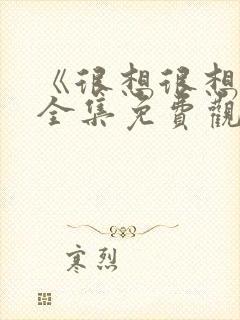 《很想很想
全集免費觀
寒烈